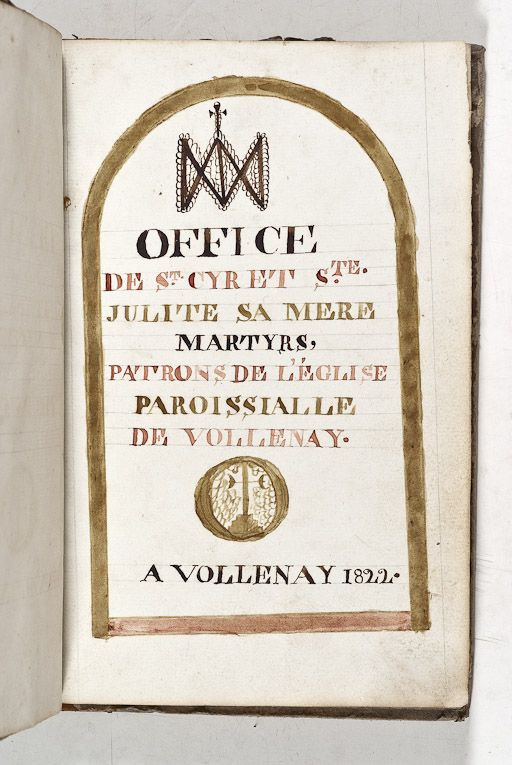 OFFICE
DE St. CYR ET Ste.
JULITE SA MERE
MARTYRS,
PATRONS DE L'ÉGLISE
PAROISSIALLE
DE VOLLENAY.
A VOLLENAY 1822.